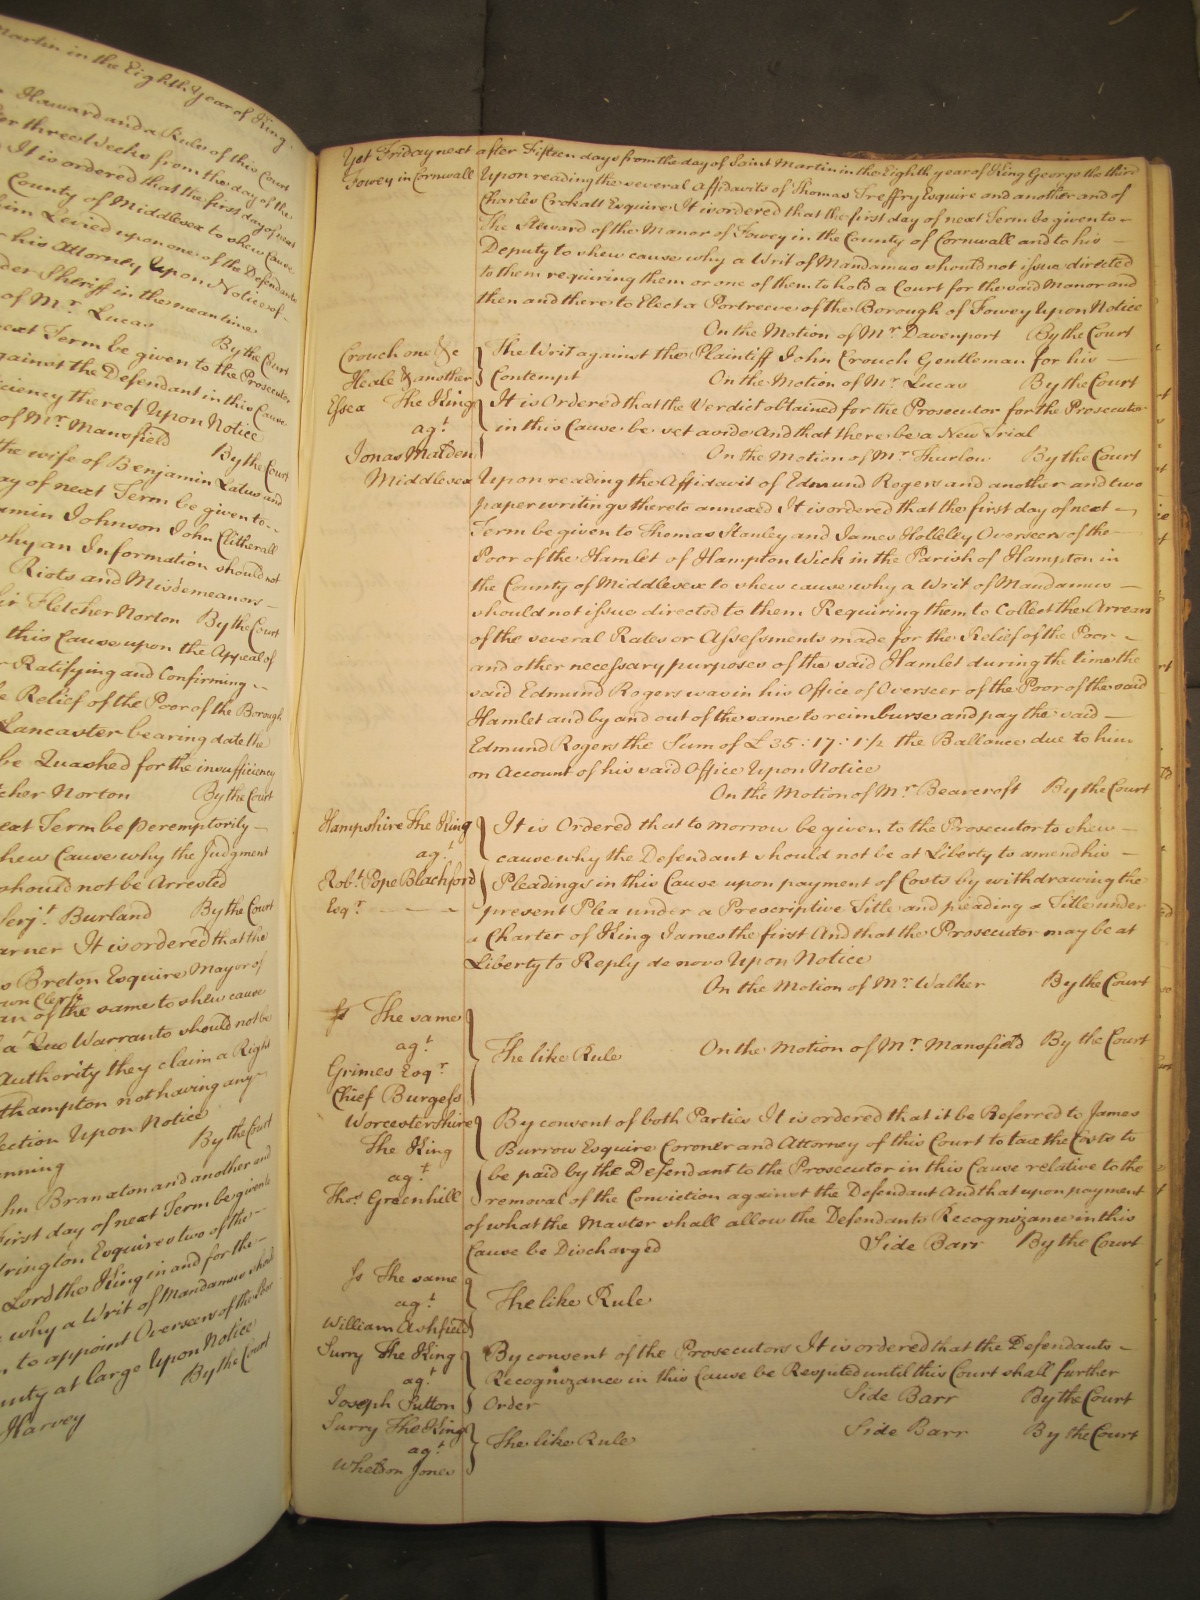 Martin in the Eighth Year of King
Howard and a Rule of this Court
three Weeks from the day of the
It is ordered that the first day of next
County of Middlesex to shew Cause
him Levied upon one of the Defendants
his Attorney Upon Notice of
Sheriff in the mean time
of Mr. Lucas By the Court
next Term be given to the Prosecutor
against the Defendant in this Cause
thereof Upon Notice
of Mr. Mansfield By the Court
the wife of Benjamin Latus and
day of next Term be given to
Benjamin Johnson John Clitherall
why an Information should not
Riots and Misdemeanors
Fletcher Norton By the Court
this Cause upon the Appeal of
Ratifying and Confirming
Relief of the Poor of the Borough
Lancaster bearing date the
be Quashed for the insufficiency
Fletcher Norton By the Court
next Term be Peremptorily
shew Cause why the Judgment
should not be Arrested
Serjt. Burland By the Court
It is ordered that the
Breton Esquire Mayor of
Town Clerk
of the same to shew cause
a Quo Warranto should not be
Authority they claim a Right
not having any
Upon Notice
By the Court
John Branxton and another and
First day of next Term be given to
Esquires two of the
Lord the King in and for the
why a Writ of Mandamus should
to appoint Overseers of the Poor
at large Upon Notice
By the Court
Harvey
Yet Friday next after Fifteen days from the day of Saint Martin in the Eighth year of King George the third
Fowey in Cornwall Upon reading the several Affidavits of Thomas Treffry Esquire and another and of
Charles Crokatt Esquire It is ordered that the first day of next Term be given to
The Steward of the Manor of Fowey in the County of Cornwall and to his
Deputy to shew cause why a Writ of Mandamus should not issue directed
to them requiring them or one of them to hold a Court for the said Manor and
then and there to Elect a Portreeve of the Borough of Fowey Upon Notice
On the Motion of Mr. Davenport By the Court
Crouch one &c The Writ against the Plaintiff John Crouch Gentleman for his
Heale & another Contempt On the Motion of Mr. Lucas By the Court
Essex The King It is Ordered that the Verdict obtained for the Prosecutor for the Prosecutor
agt. in this Cause be set aside And that there be a New Trial
Jonas Malden On the Motion of Mr. Thurlow By the Court
Middlesex Upon reading the Affidavit of Edmund Rogers and another and two
paper writings thereto annexed It is ordered that the first day of next
Term be given to Thomas Stanley and James Holleley Overseers of the
Poor of the Hamlet of Hampton Wick in the Parish of Hampton in
the County of Middlesex to shew cause why a Writ of Mandamus
should not issue directed to them Requiring them to Collect the Arrears
of the several Rates or Assessments made for the Relief of the Poor
and other necessary purposes of the said Hamlet during the time the
said Edmund Rogers was in his Office of Overseer of the Poor of the said
Hamlet and by and out of the same to reimburse and pay the said
Edmund Rogers the Sum of £35:17:1½ the Ballance due to him
on Account of his said Office Upon Notice
On the Motion of Mr. Bearcroft By the Court
Hampshire The King It is Ordered that to morrow be given to the Prosecutor to shew
agt. cause why the Defendant should not be at Liberty to amend his
Robt. Pope Blachford Pleadings in this Cause upon payment of Costs by withdrawing the
Esqr. present Plea under a Prescriptive Title and pleading a Title under
a Charter of King James the first And that the Prosecutor may be at
Liberty to Reply de novo Upon Notice
On the Motion of Mr. Walker By the Court
Js The same
agt. The like Rule On the Motion of Mr. Mansfield By the Court
Grimes Esqr.
Chief Burgess
Worcestershire By consent of both Parties It is ordered that it be Referred to James
The King Burrow Esquire Coroner and Attorney of this Court to tax the Costs to
agt. be paid by the Defendant to the Prosecutor in this Cause relative to the
Thos. Greenhill removal of the Conviction against the Defendant And that upon payment
of what the Master shall allow the Defendants Recognizance in this
Cause be Discharged Side Barr By the Court
Js The same
agt. The like Rule
William Ashfield
Surry The King By consent of the Prosecutors It is ordered that the Defendants
agt. Recognizance in this Cause be Respited until this Court shall further
Joseph Sutton Order Side Barr By the Court
Surry The King Side Barr By the Court
agt. The like Rule
Wheldon Jones